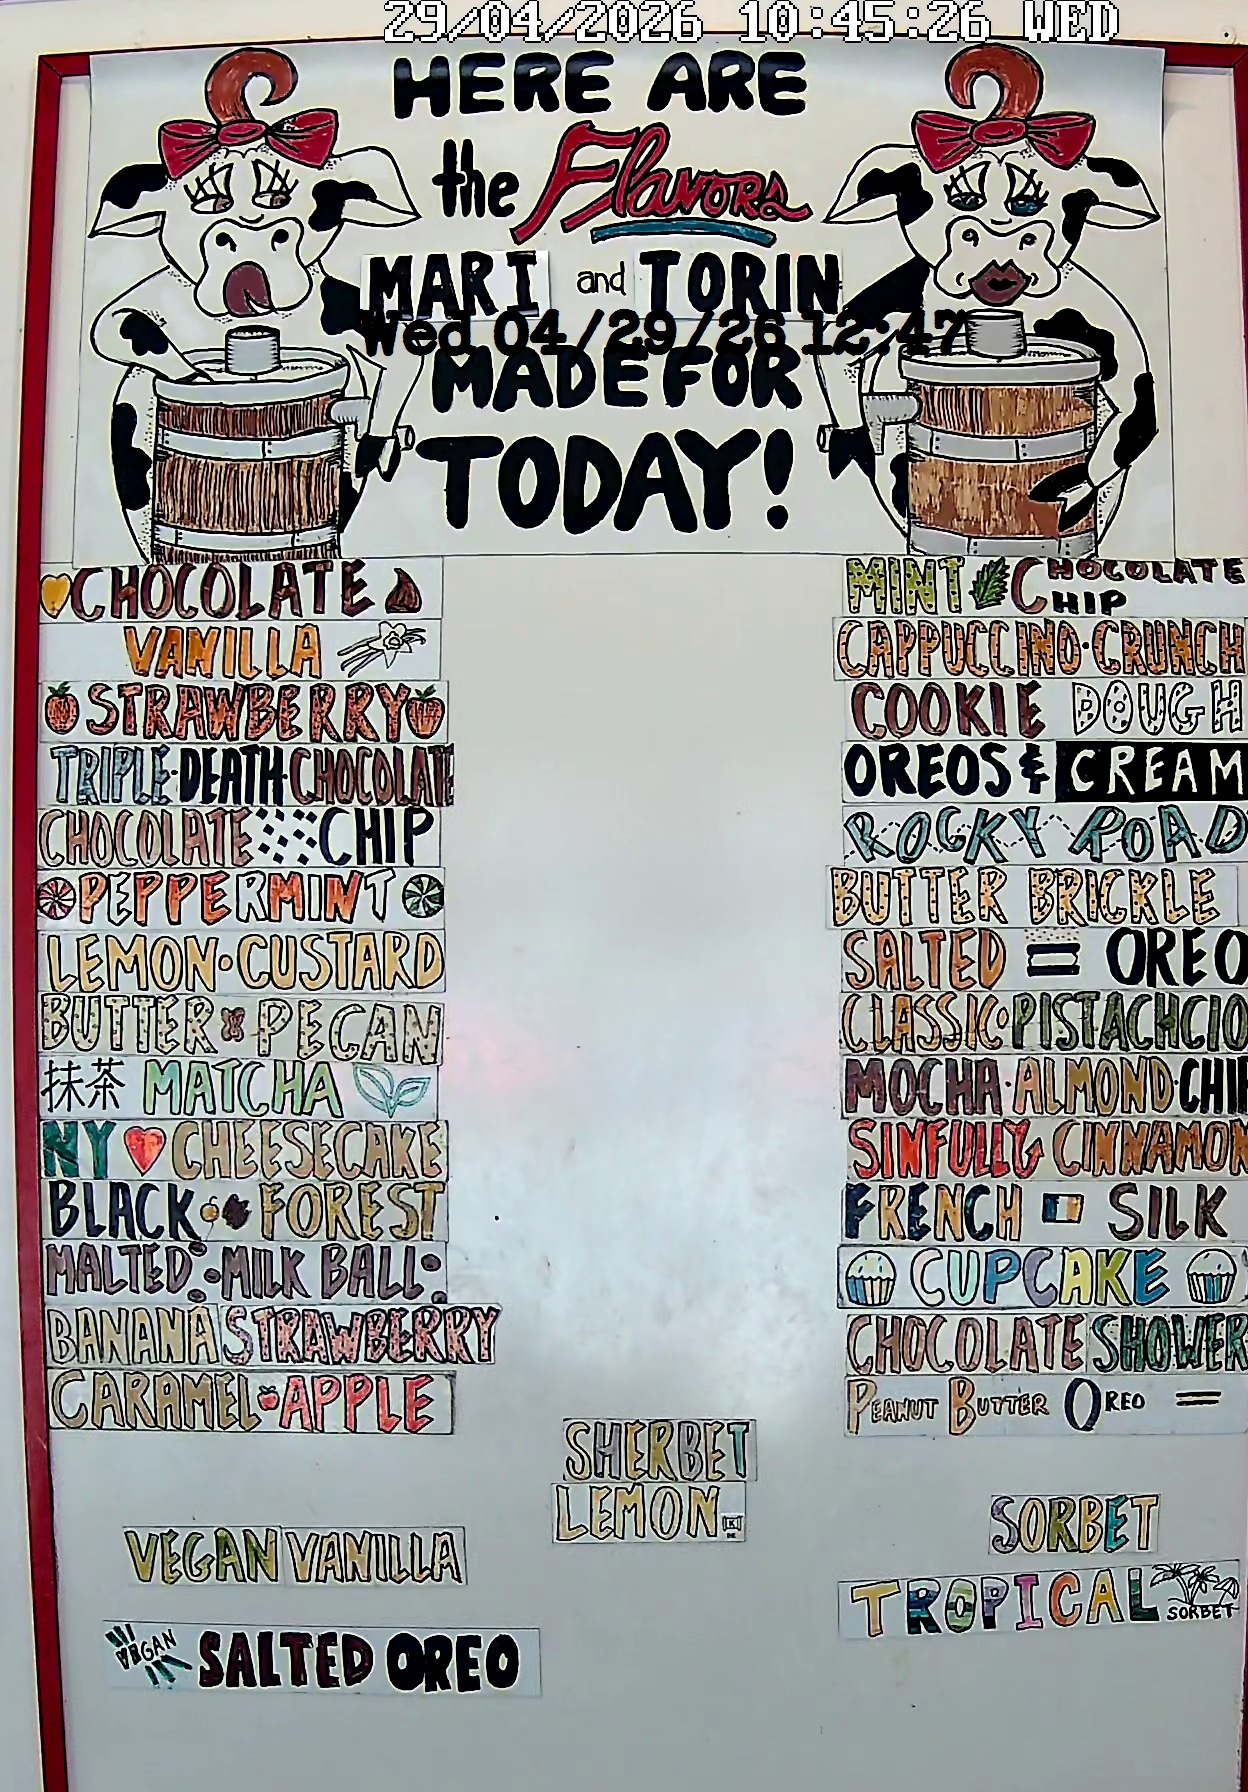 29/04/2026 10:45:26 WED
HERE ARE
the Flavors
MARI and TORIN
Wed 04/29/26 12:47
MADE FOR
TODAY!
CHOCOLATE
VANILLA
STRAWBERRY
TRIPLE·DEATH·CHOCOLATE
CHOCOLATE CHIP
PEPPERMINT
LEMON·CUSTARD
BUTTER PECAN
抹茶 MATCHA
NY CHEESECAKE
BLACK FOREST
MALTED·MILK BALL
BANANA STRAWBERRY
CARAMEL APPLE
VEGAN VANILLA
VEGAN SALTED OREO
SHERBET
LEMON
MINT CHOCOLATE CHIP
CAPPUCCINO·CRUNCH
COOKIE DOUGH
OREOS & CREAM
ROCKY ROAD
BUTTER BRICKLE
SALTED OREO
CLASSIC PISTACHCIO
MOCHA·ALMOND·CHIP
SINFULLY CINNAMON
FRENCH SILK
CUPCAKE
CHOCOLATE SHOWER
PEANUT BUTTER OREO
SORBET
TROPICAL SORBET